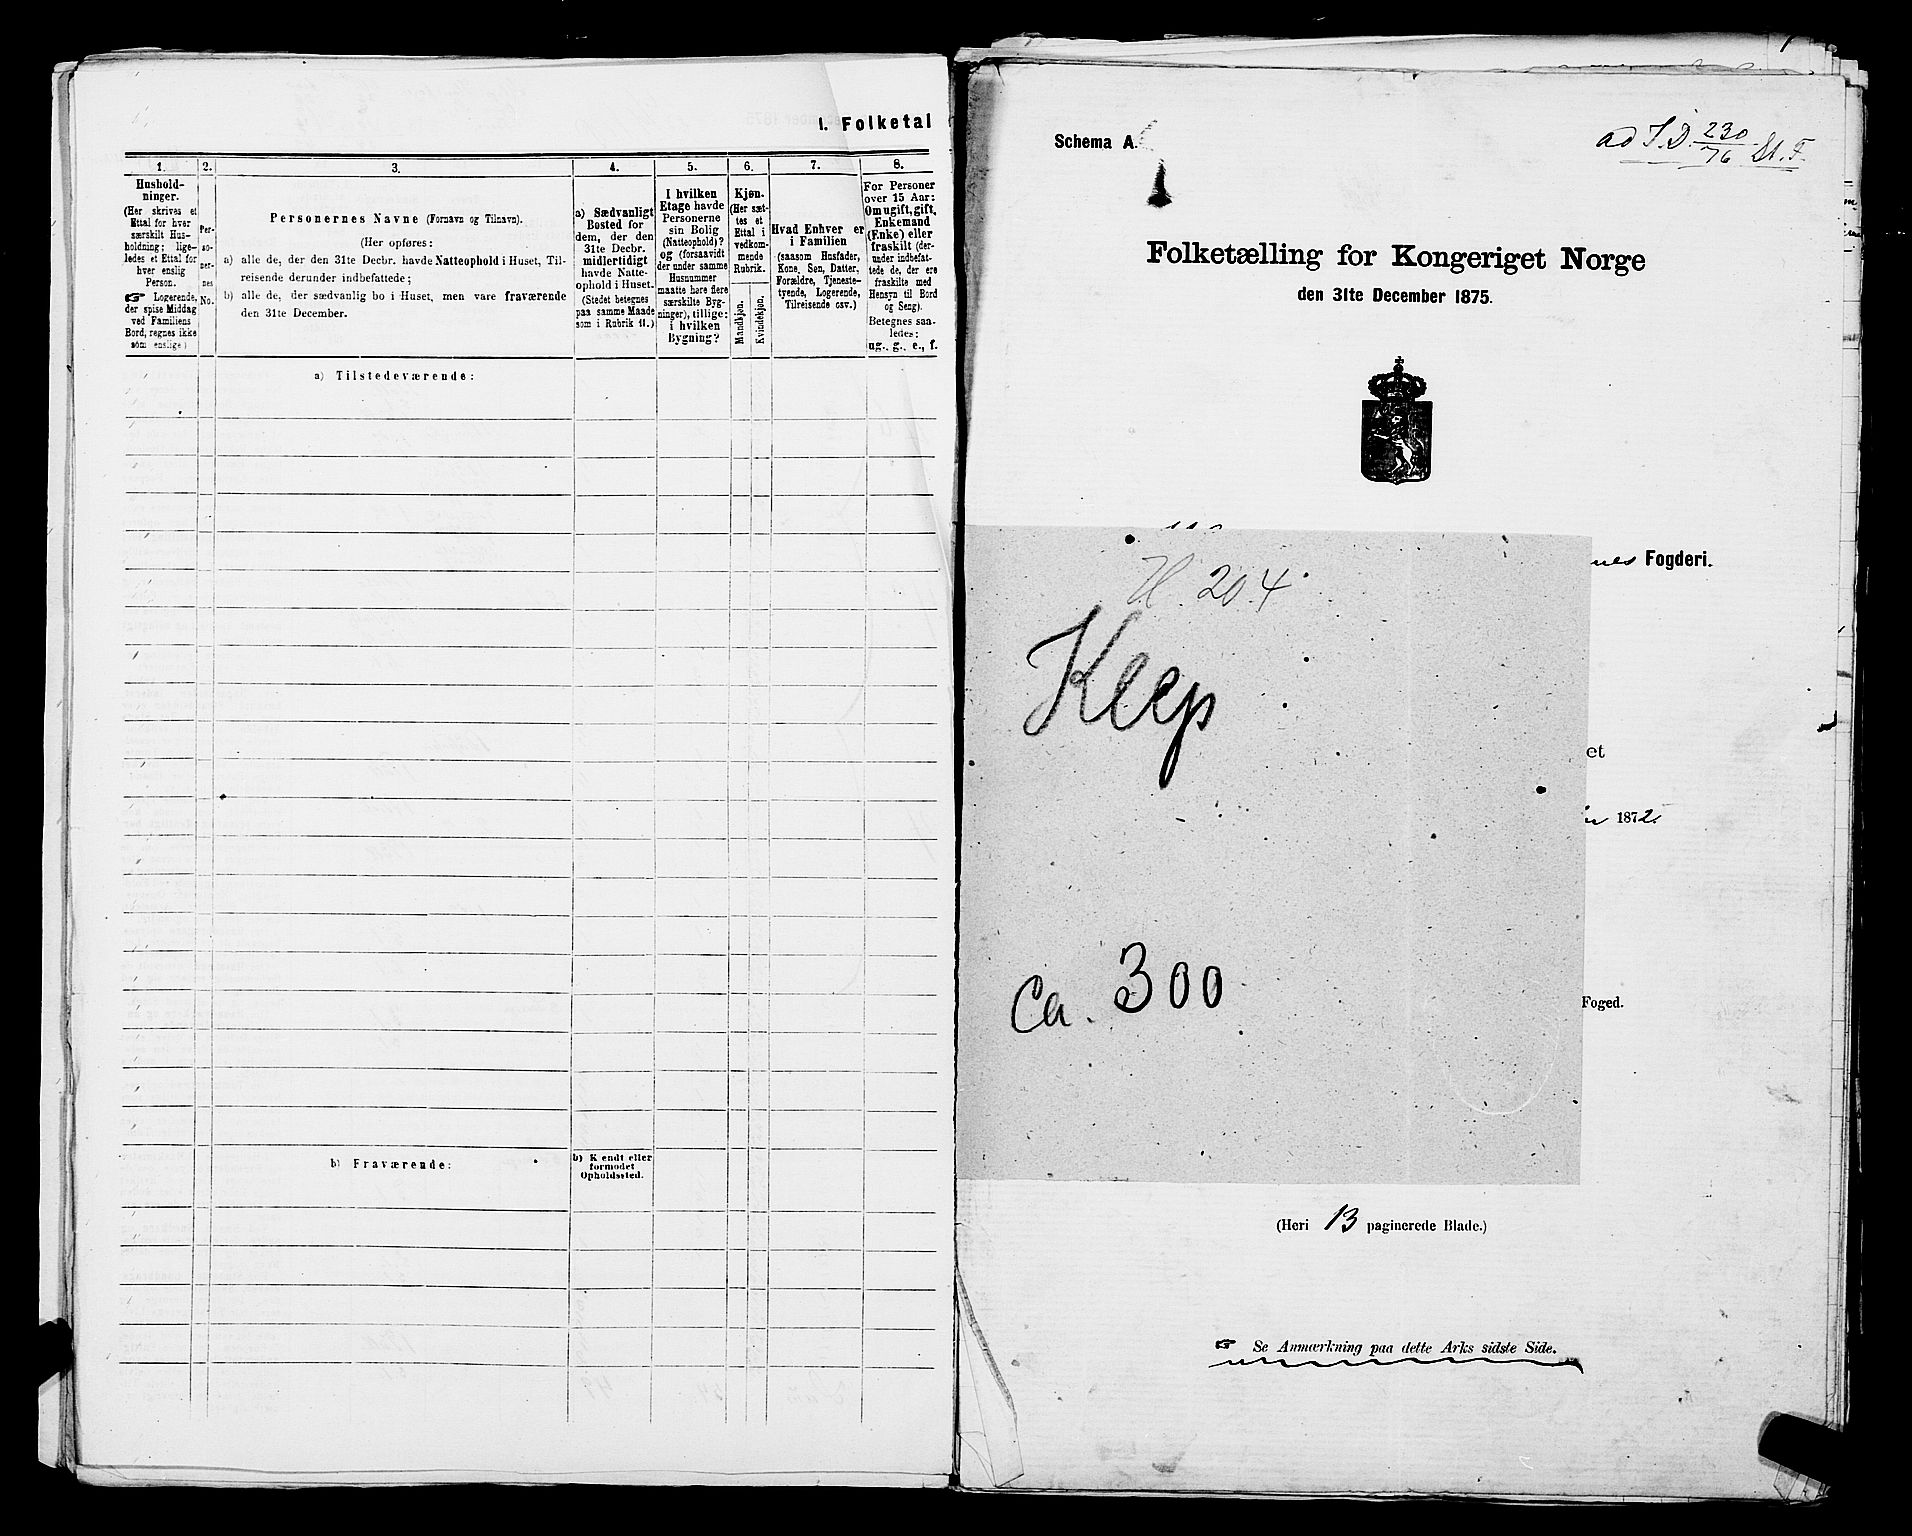 1. Folketal
1.
2.
3.
4.
5.
6.
7.
8.
Hushold-
ninger.
(Her skrives et
Ettal for hver
særskilt Hus-
holdning; lige-
ledes et Ettal for
hver enslig
Person.
☞ Logerende,
der spise Middag
ved Familiens
Bord, regnes ikke
som enslige)
Per-
so-
ner-
nes
No.
Personernes Navne (Fornavn og Tilnavn).
(Her opføres:
a) alle de, der den 31te Decbr. havde Natteophold i Huset, Til-
reisende derunder indbefattede;
b) alle de, der sædvanlig bo i Huset, men vare fraværende
den 31te December.
a) Sædvanligt
Bosted for
dem, der den
31te Decbr.
midlertidigt
havde Natte-
ophold i Huset.
(Stedet betegnes
paa samme Maade
som i Rubrik 11.)
I hvilken
Etage havde
Personerne
sin Bolig
(Natteophold)?
og (forsaavidt
der under samme
Husnummer
maatte høre flere
særskilte Byg-
ninger), tillige:
i hvilken
Bygning?
Kjøn.
(Her sæt-
tes et
Ettal i
vedkom-
mende
Rubrik.
Mandkjøn.
Kvindekjøn.
Hvad Enhver er
i Familien
(saasom Husfader,
Kone, Søn, Datter,
Forældre, Tjeneste-
tyende, Logerende,
Tilreisende osv.)
For Personer
over 15 Aar:
Om ugift, gift,
Enkemand
(Enke) eller
fraskilt (der-
under indbefat-
tede de, der ere
fraskilte med
Hensyn til Bord
og Seng).
Betegnes saa-
ledes:
ug., g., e., f.
a) Tilstedeværende:
b) Fraværende:
b) Kendt eller
formodet
Opholdssted.
Schema A.
ad J.D. 230/76 St. F.
Folketælling for Kongeriget Norge
den 31te December 1875.
nes Fogderi.
H. 204
Klep
et
1872.
Ca. 300
Foged.
(Heri 13 paginerede Blade.)
☞ Se Anmærkning paa dette Arks sidste Side.